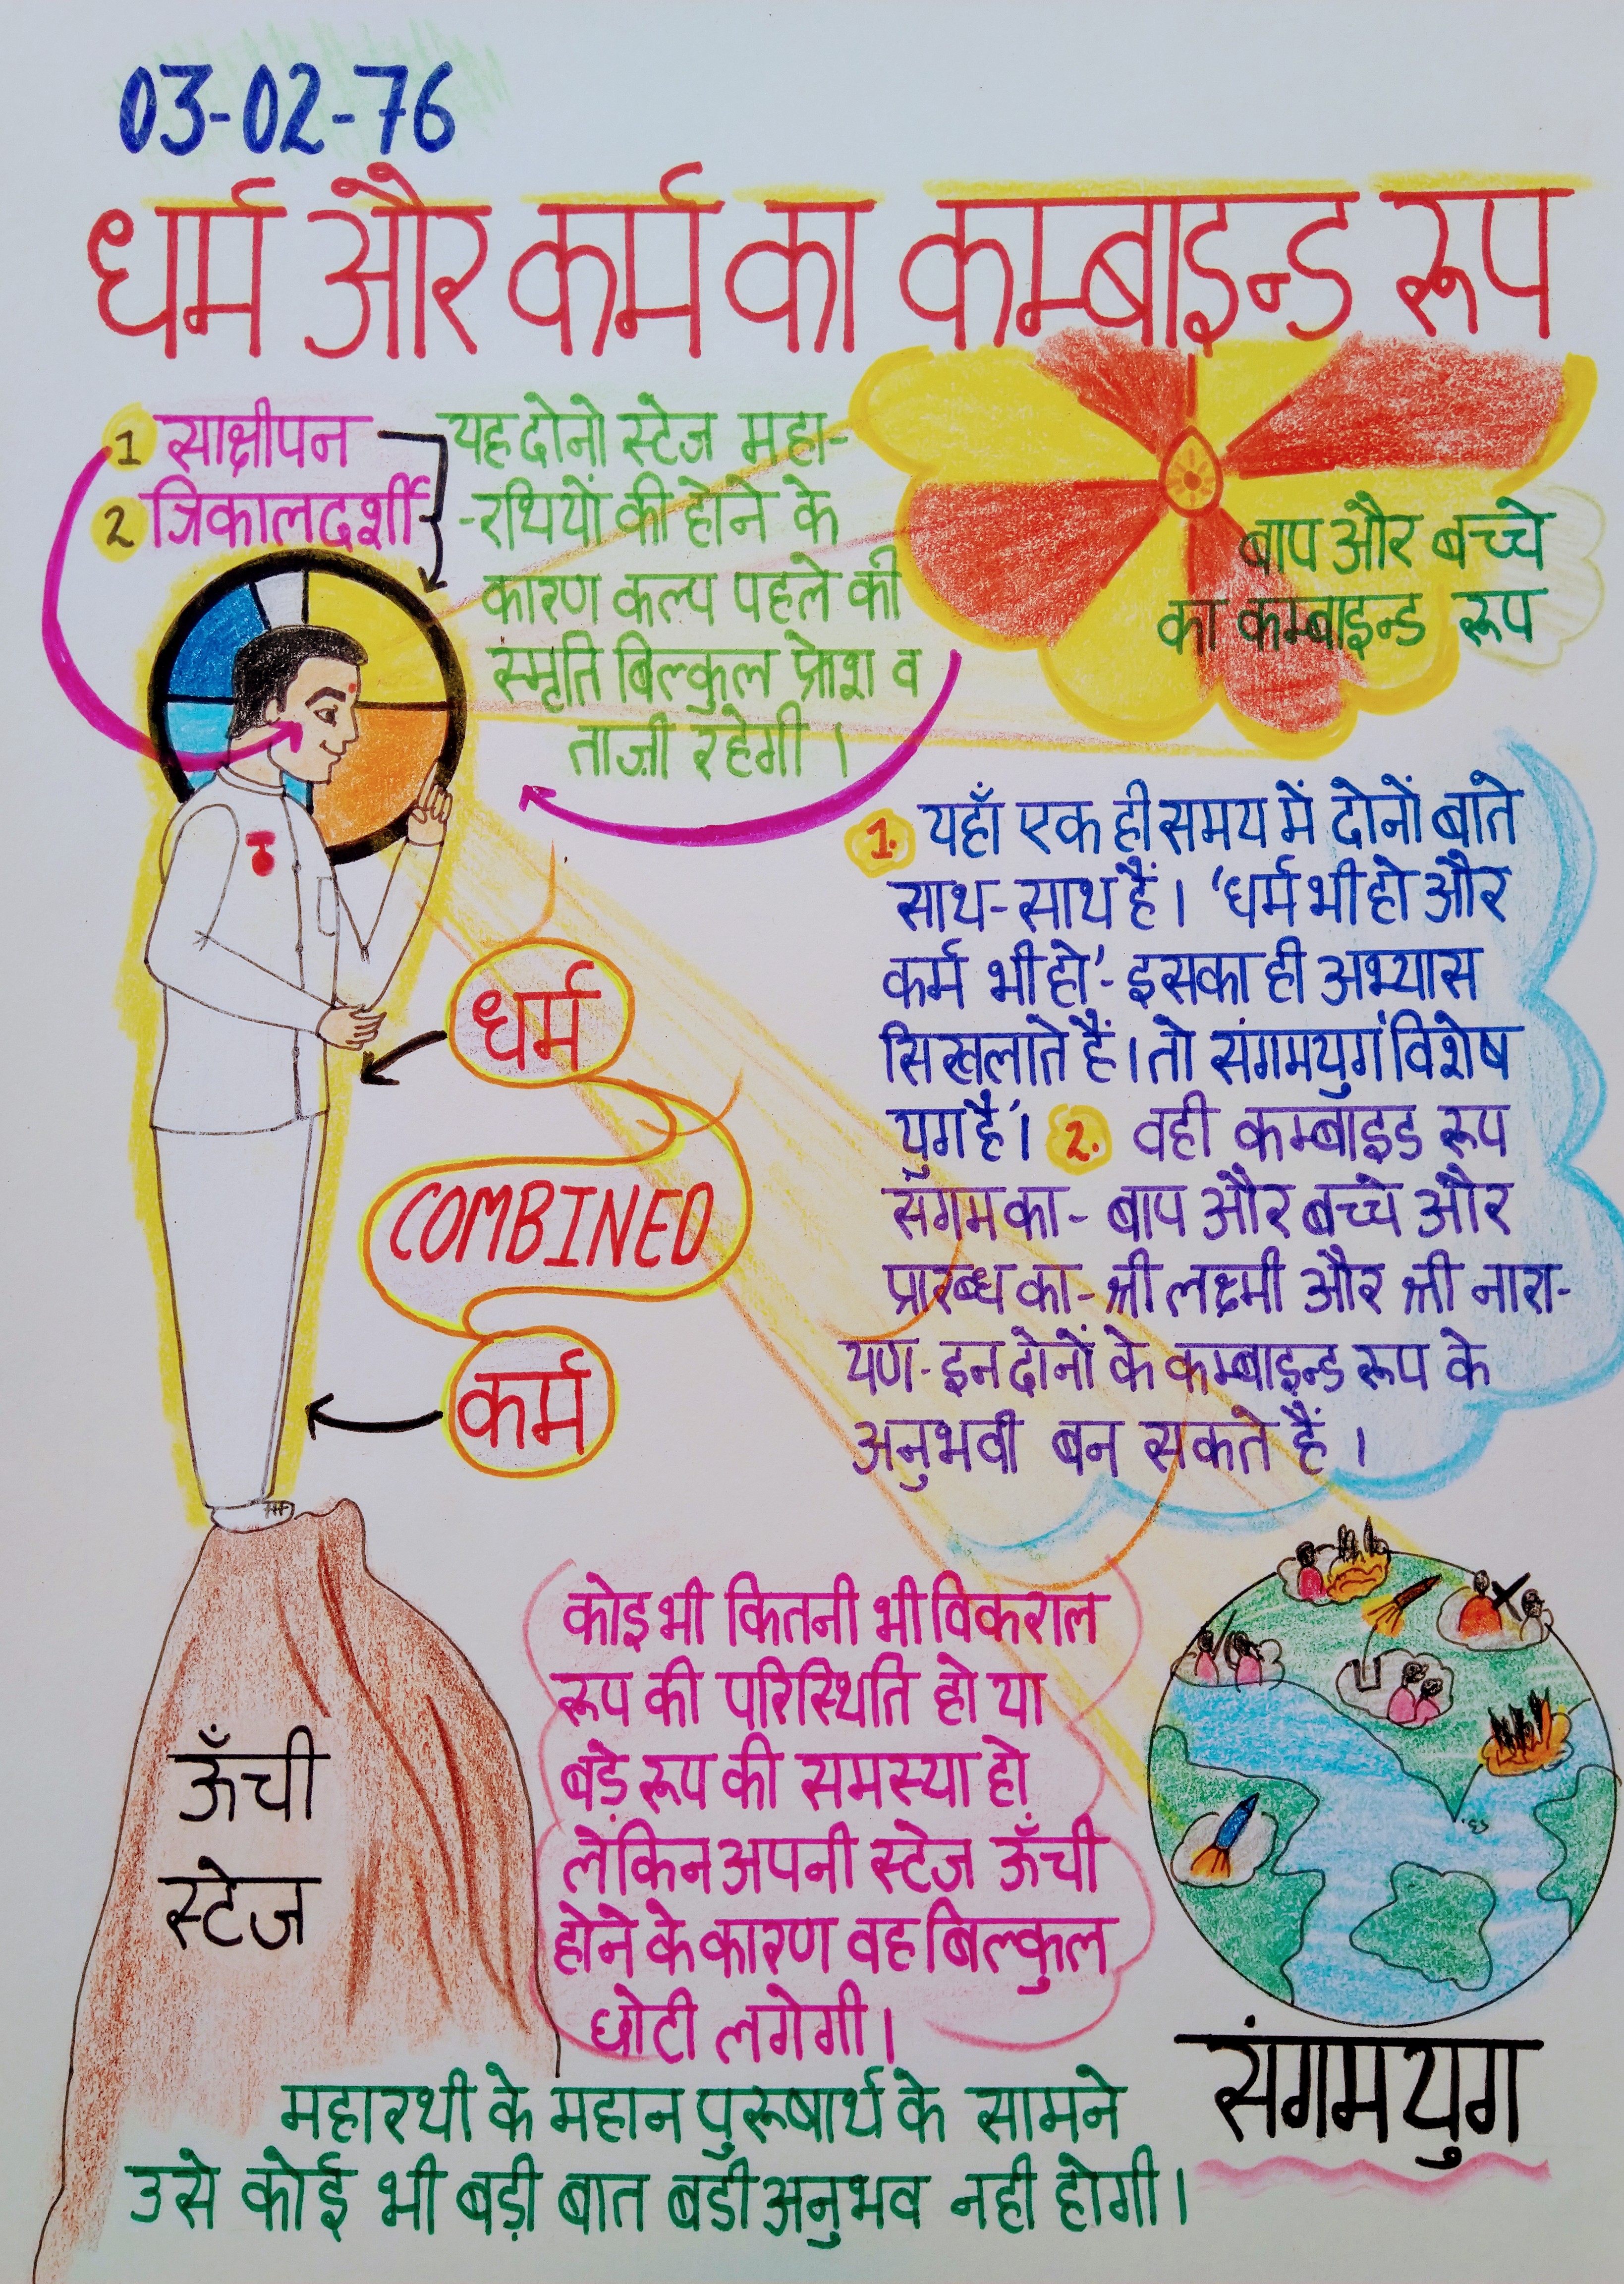 03-02-76
धर्म और कर्म का कम्बाइन्ड रूप
1 साक्षीपन
2 त्रिकालदर्शी
यह दोनो स्टेज महा-
-रथियों की होने के
कारण कल्प पहले की
स्मृति बिल्कुल फ्रेश व
ताज़ी रहेगी ।
बाप और बच्चे
का कम्बाइन्ड रूप
1. यहाँ एक ही समय में दोनों बाते
साथ-साथ हैं। 'धर्म भी हो और
कर्म भी हो'- इसका ही अभ्यास
सिखलाते हैं। तो संगमयुग विशेष
युग है'। 2. वही कम्बाइड रूप
संगम का- बाप और बच्चे और
प्रारब्ध का- श्री लक्ष्मी और श्री नारा-
यण- इन दोनों के कम्बाइन्ड रूप के
अनुभवी बन सकते हैं ।
धर्म
COMBINED
कर्म
कोइ भी कितनी भी विकराल
रूप की परिस्थिति हो या
बड़े रूप की समस्या हो
लेकिन अपनी स्टेज ऊँची
होने के कारण वह बिल्कुल
छोटी लगेगी।
ऊँची
स्टेज
संगमयुग
महारथी के महान पुरूषार्थ के सामने
उसे कोई भी बड़ी बात बडी अनुभव नही होगी।